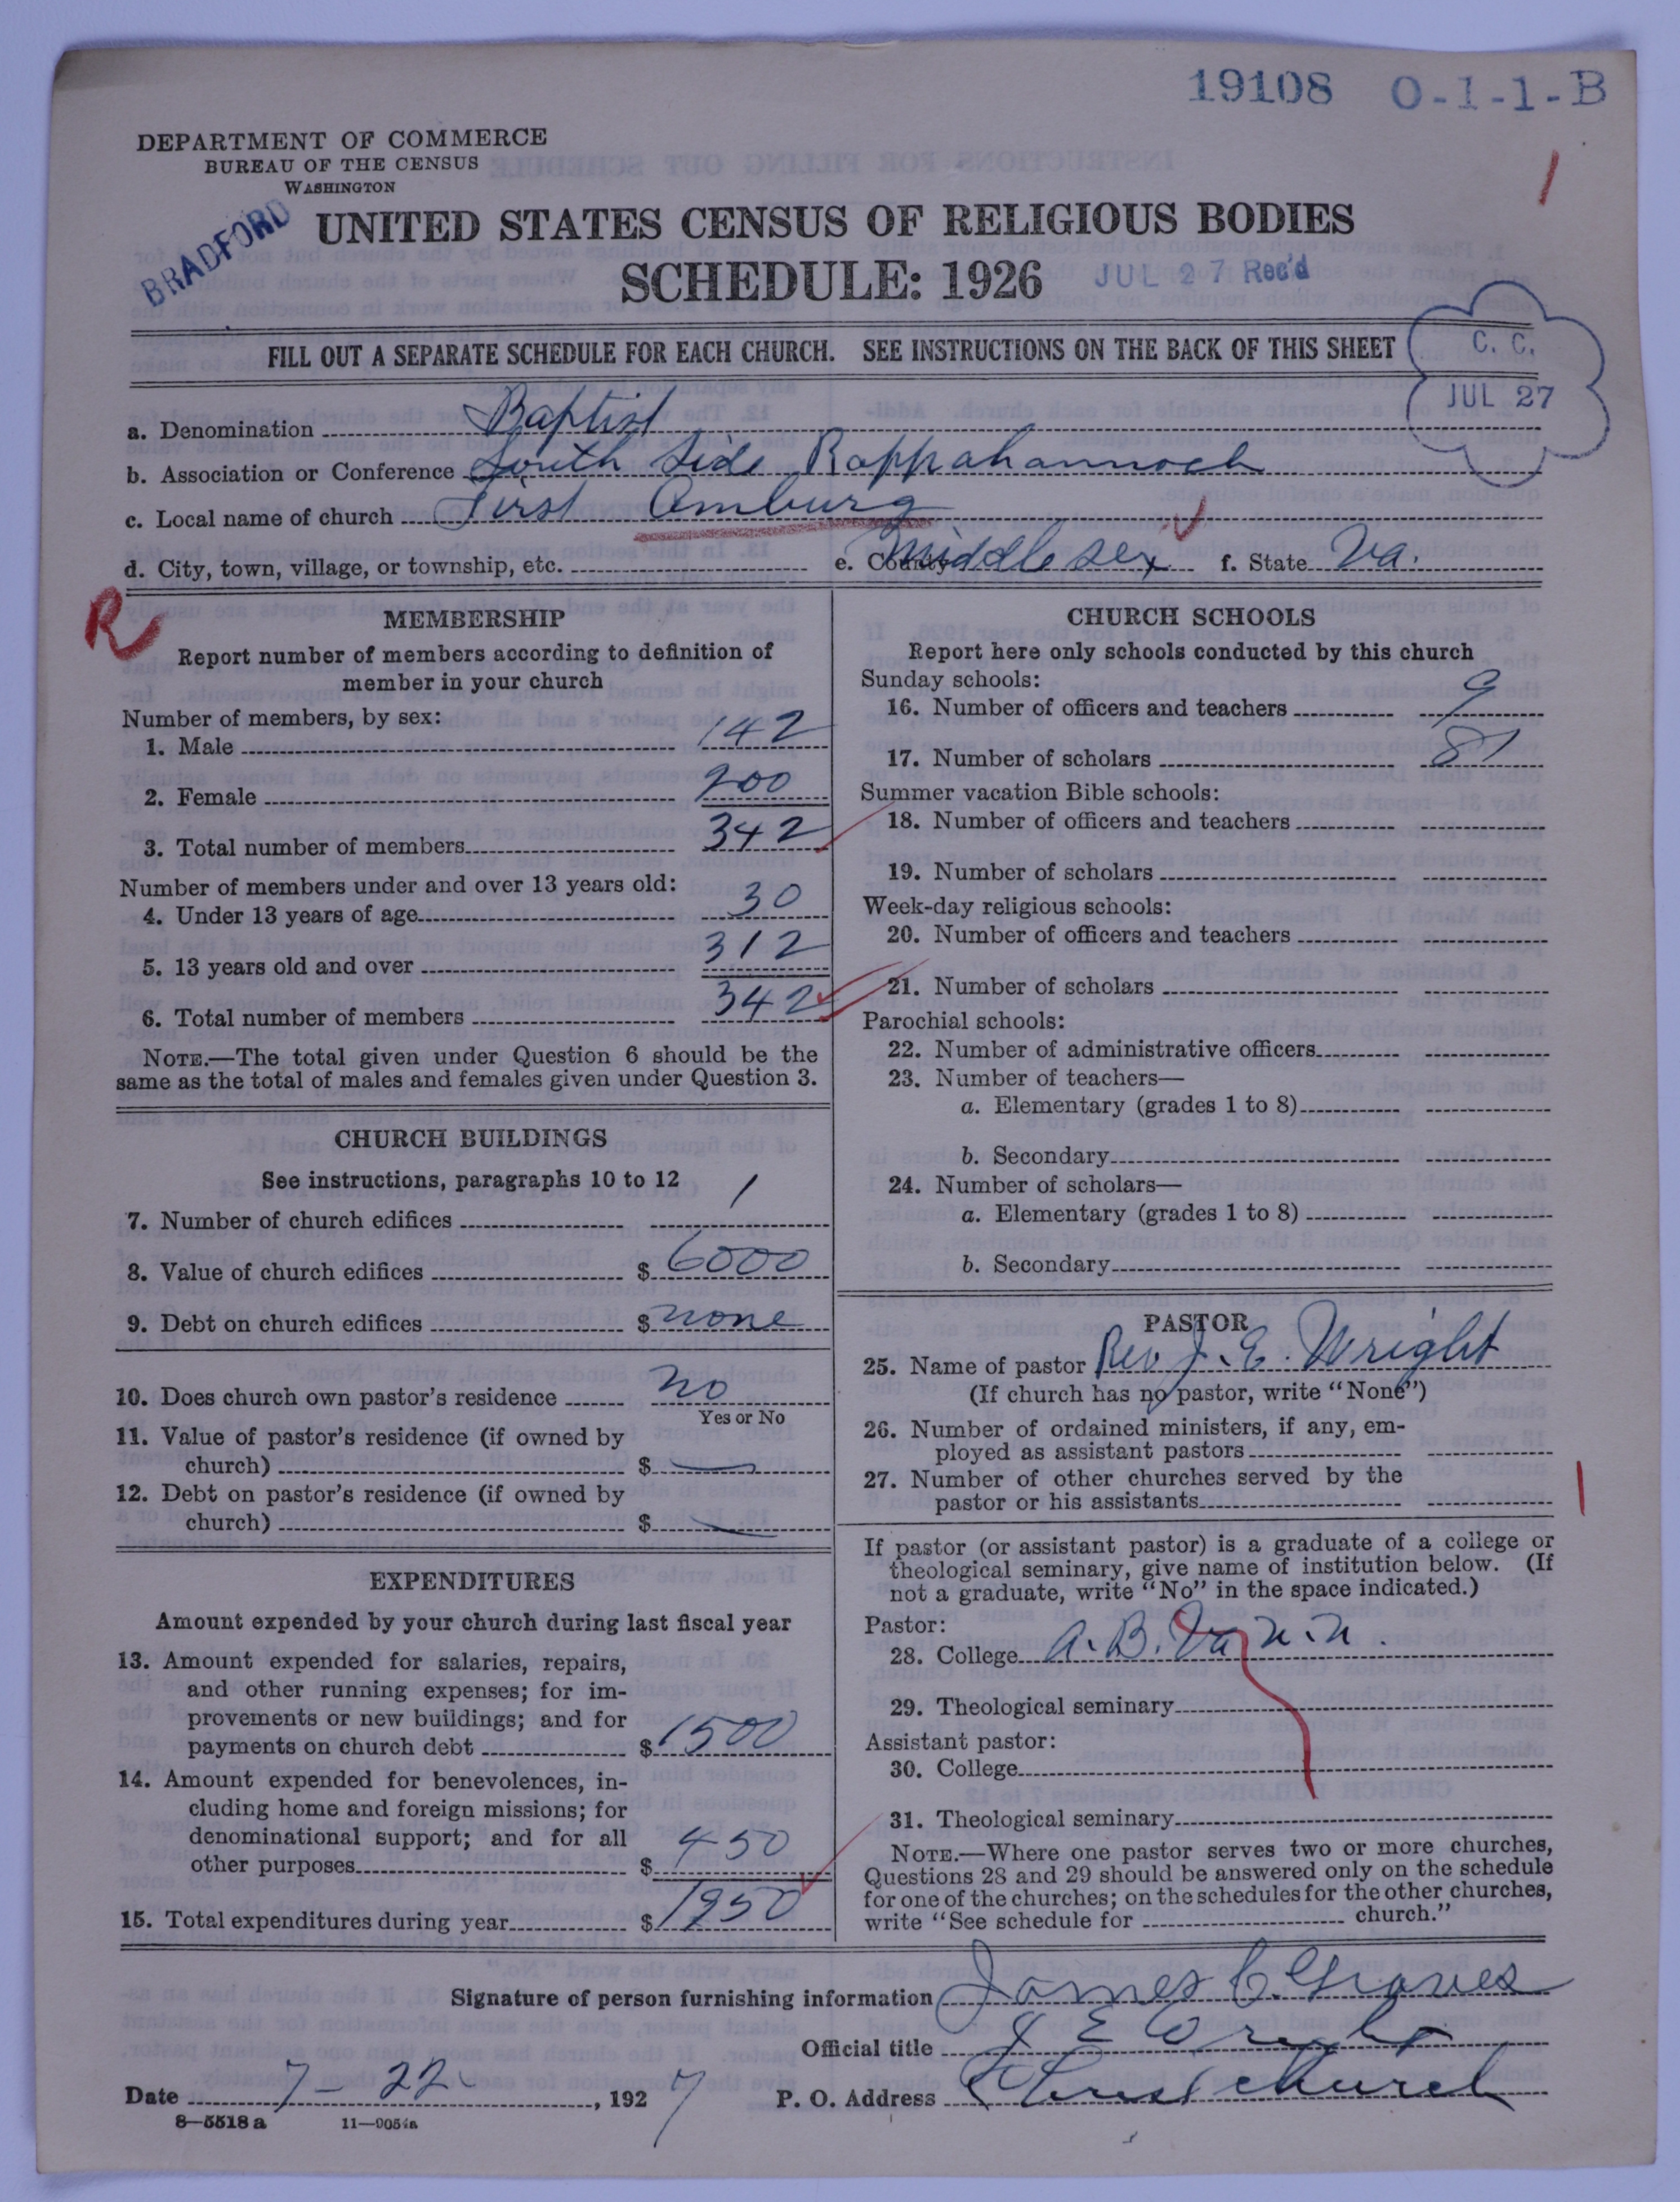 19108 O-1-1-B
DEPARTMENT OF COMMERCE
BUREAU OF THE CENSUS
WASHINGTON
1
BRADFORD
UNITED STATES CENSUS OF RELIGIOUS BODIES
SCHEDULE: 1926
JUL 27 Rec'd
FILL OUT A SEPARATE SCHEDULE FOR EACH CHURCH. SEE INSTRUCTIONS ON THE BACK OF THIS SHEET
C. C.
JUL 27
a. Denomination Baptist
b. Association or Conference South Side Rappahannock
c. Local name of church First Amburg
d. City, town, village, or township, etc. e. County Middlesex f. State Va.
R
MEMBERSHIP
Report number of members according to definition of
member in your church
Number of members, by sex:
1. Male 142
2. Female 200
3. Total number of members 342
Number of members under and over 13 years old:
4. Under 13 years of age 30
5. 13 years old and over 312
6. Total number of members 342
NOTE.—The total given under Question 6 should be the
same as the total of males and females given under Question 3.
CHURCH BUILDINGS
See instructions, paragraphs 10 to 12
7. Number of church edifices 1
8. Value of church edifices $ 6000
9. Debt on church edifices $ none
10. Does church own pastor's residence no
Yes or No
11. Value of pastor's residence (if owned by
church) $ —
12. Debt on pastor's residence (if owned by
church) $ —
EXPENDITURES
Amount expended by your church during last fiscal year
13. Amount expended for salaries, repairs,
and other running expenses; for im-
provements or new buildings; and for
payments on church debt $ 1500
14. Amount expended for benevolences, in-
cluding home and foreign missions; for
denominational support; and for all
other purposes $ 450
15. Total expenditures during year $ 1950
CHURCH SCHOOLS
Report here only schools conducted by this church
Sunday schools:
16. Number of officers and teachers 9
17. Number of scholars 81
Summer vacation Bible schools:
18. Number of officers and teachers
19. Number of scholars
Week-day religious schools:
20. Number of officers and teachers
21. Number of scholars
Parochial schools:
22. Number of administrative officers
23. Number of teachers—
a. Elementary (grades 1 to 8)
b. Secondary
24. Number of scholars—
a. Elementary (grades 1 to 8)
b. Secondary
PASTOR
25. Name of pastor Rev J. E. Wright
(If church has no pastor, write "None")
26. Number of ordained ministers, if any, em-
ployed as assistant pastors
27. Number of other churches served by the
pastor or his assistants
1
If pastor (or assistant pastor) is a graduate of a college or
theological seminary, give name of institution below. (If
not a graduate, write "No" in the space indicated.)
Pastor:
28. College A. B. Va n. n.
29. Theological seminary
Assistant pastor:
30. College
31. Theological seminary
NOTE.—Where one pastor serves two or more churches,
Questions 28 and 29 should be answered only on the schedule
for one of the churches; on the schedules for the other churches,
write "See schedule for church."
Signature of person furnishing information James C. Graves
Official title J E Wright
Date 7-22 , 1927 P. O. Address Christchurch
8-5518 a 11-9054a